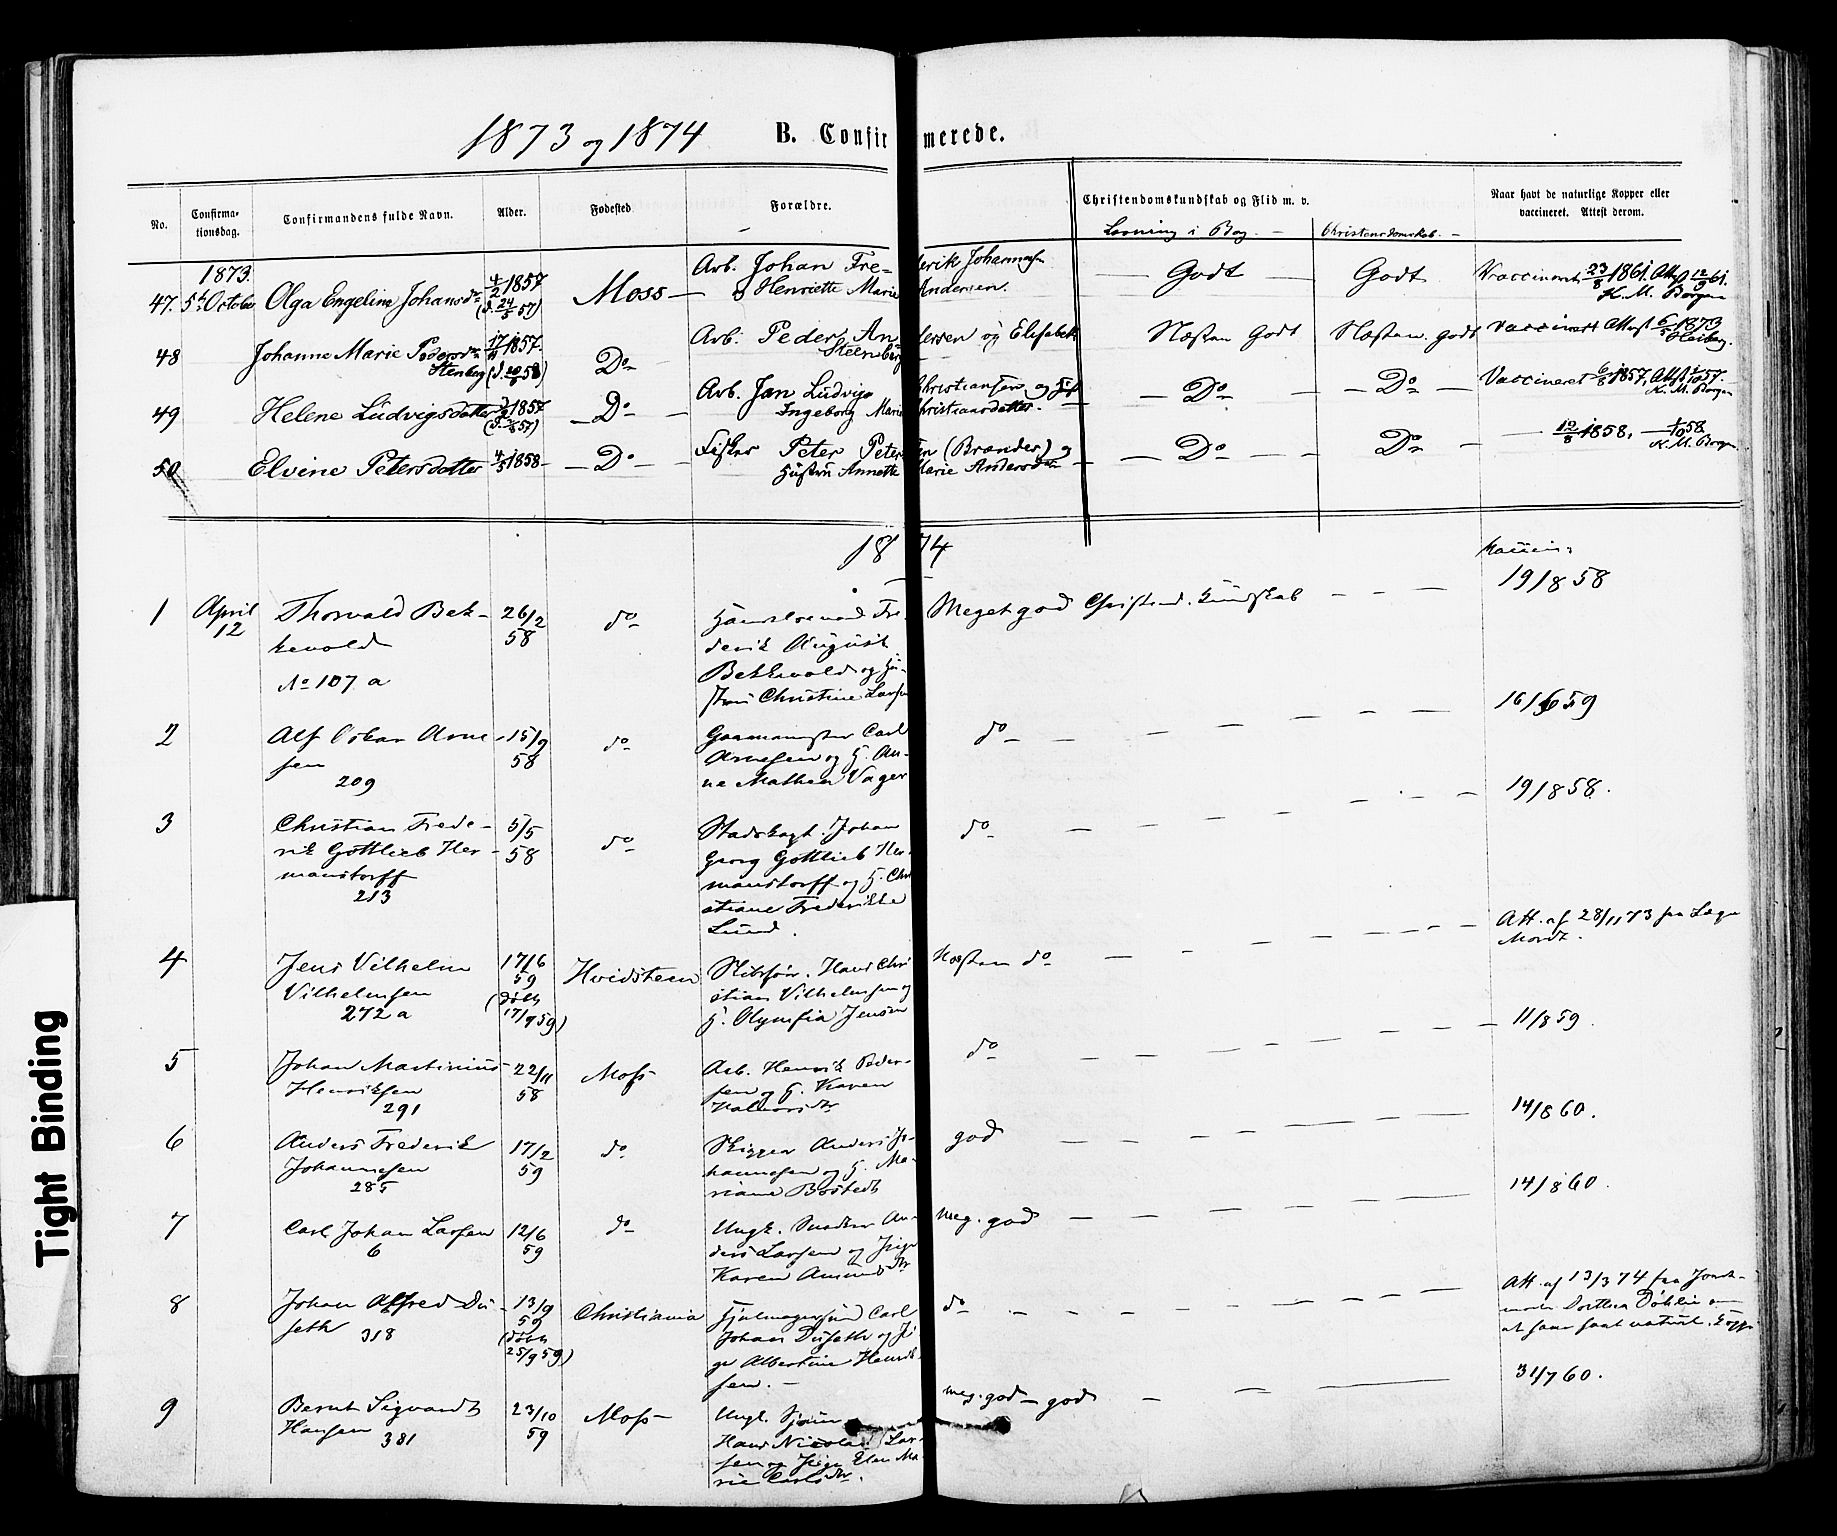 1873 og 1874 B. Confirmerede.
No. Confirmationsdag. Confirmandens fulde Navn. Alder. Fødested Forældre. Christendomskundskab og Flid m. v. Naar havt de naturlige Kopper eller vaccineret. Attest derom.
Læsning i Bog. - Christendomskab. -
1873.
47. 5te October Olga Engeline Johansdtr 4/2 1857 (d. 24/5 57) Moss Arb. Johan Frederik Johannessen Godt Godt Vaccineret 23/8 1861. Att 12/9 61.
Henriette Marie Andersen. K. M. Borgen
48 Johanne Marie Pedersdtr 17/11 1857. Do Arb. Peder Andersen og Elisabeth Næsten Godt Næsten godt Vaccineret Attest 6/5 1873
Stenberg Steenberg Heiberg.
49 Helene Ludvigsdatter 1857 Do Arb. Jan Ludvig Christiansen og Do Do Vaccineret 6/8 1857, Att 57.
Ingeborg Marie Christiansdatter. K. M. Borgen
50 Elvine Petersdatter 4/5 1858 Do Fisker Peter Petersen (Brænder) og Do Do 12/8 1858. 58
Hustru Annette Marie Andersdtr K. M. Borgen
1874
1 April 12 Thorvald Bek- 26/2 58 do Meget god Christend. Kundskab 19/8 58
kevold derik August
No 107 a Bekkevold og Hu-
stru Christine Larsen
2 Alf Oskar Arne- 15/9 58 do Carl do 16/6 59
sen Arnesen og H. An-
209 ne Mathea Vager
3 Christian Frede- 5/5 58 do Johan do 19/8 58.
rik Gottlieb Her- Georg Gottlieb Her-
manstorff manstorff og H. Chri-
213 stiane Frederikke
Lund.
4 Jens Vilhelm 17/6 59 Hvidsteen Skibsfør. Hans Chri- Næsten do Att. af 28/11 73 fra Læge
Vilhelmsen (døbt 17/9 59) stian Vilhelmsen og Mordt.
272 a H. Olymfia Jensen
5 Johan Martinius 22/11 58 Moss Arb. Henrik Peder- do 11/8 59.
Henriksen sen og H. Karen
291 Halvorsdtr
6 Anders Frederik 17/2 59 do Skipper Anders Jo- god 14/8 60.
Johannesen hannesen og H. Ma-
285 riane Bosteds
7 Carl Johan Larsen 12/6 59 do Ungk. Snedker An- meg. god 14/8 60.
6 ders Larsen og Pige
Karen Amundsdtr
8 Johan Alfred Du- 13/9 59 Christiania Hjulmagersvend Carl do Att. af 13/3 74 fra Jord-
seth 318 (døbt 25/9 59) Johan Duseth og Pi- moder Dorthea Døhlin om
ge Albertine Henrik- at have havt naturl. Kopp
sen.
9 Bernt Sigvardt 23/10 59 Moss Ungk. meg. god - god 31/7 60.
Hansen Hans Nicolai Lar-
381 sen og Pige Elen Ma-
rie Carlsdtr.
Tight Binding